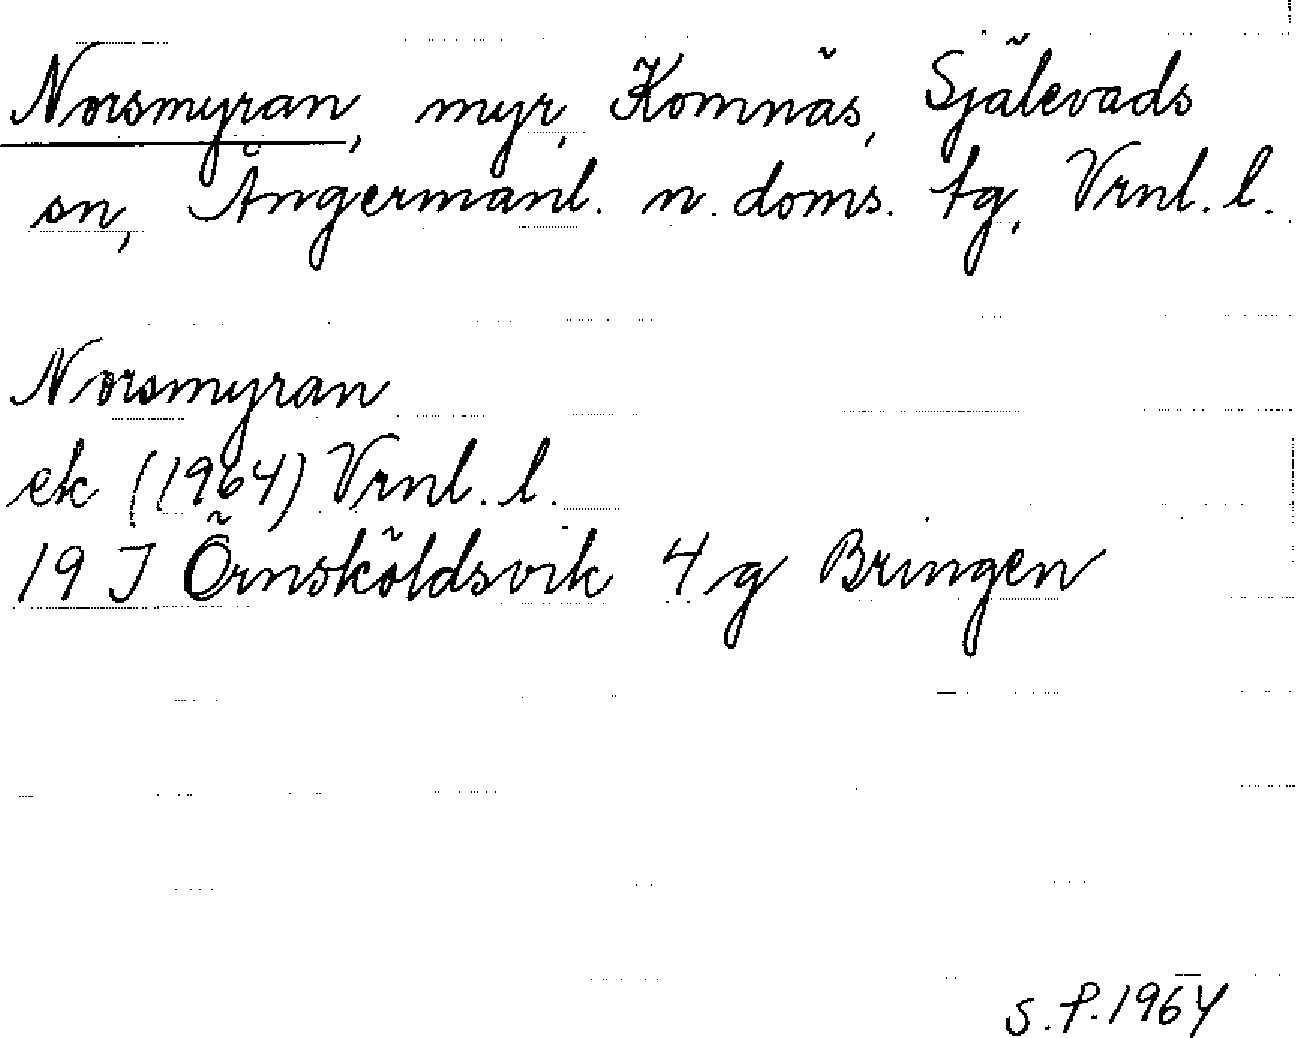 Norsmyran, myr, Komnäs, Själevads
sn, Ångermanl. n. doms. tg, Vrnl. l.
Norsmyran
ek (1964) Vrnl. l.
19 J Örnsköldsvik 4 g Bringen
S.P. 1964